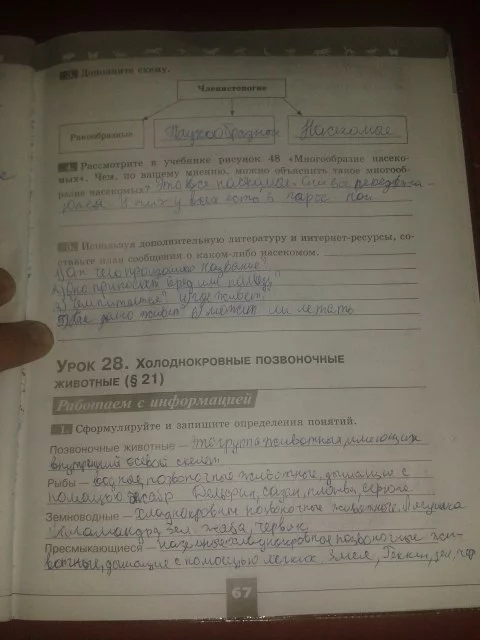 3. Дополните схему.
Членистоногие
Ракообразные Паукообразные Насекомые
4. Рассмотрите в учебнике рисунок 48 «Многообразие насеко-
мых». Чем, по вашему мнению, можно объяснить такое многооб-
разие насекомых? Это все насекомые. Они все
И у них есть 3 пары ног
5. Используя дополнительную литературу и интернет-ресурсы, со-
ставьте план сообщения о каком-либо насекомом.
1) От чего произошло название?
2) Оно приносит вред или пользу?
3) Чем питается? 4) где живет?
5) Как долго живет 6) может ли летать
Урок 28. Холоднокровные позвоночные
животные (§ 21)
Работаем с информацией
1. Сформулируйте и запишите определения понятий.
Позвоночные животные — это группа животных, имеющих
внутренний осевой скелет
Рыбы — водные, позвоночные животные, дышащие с
помощью жабр
Земноводные — Хладнокровные позвоночные животные. Лягушка
Саламандра, зел. жаба, червяк
Пресмыкающиеся — наземные хладнокровные позвоночные жи-
вотные, дышащие с помощью легких. Змея, Геккон,
67